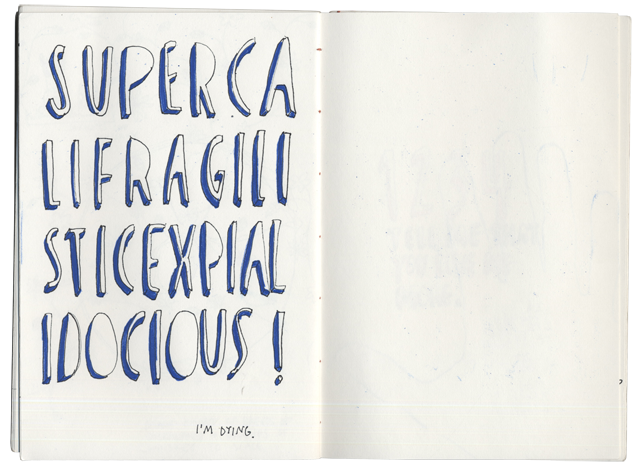 SUPERCA
LIFRAGILI
STICEXPIAL
IDOCIOUS!
I'M DYING.